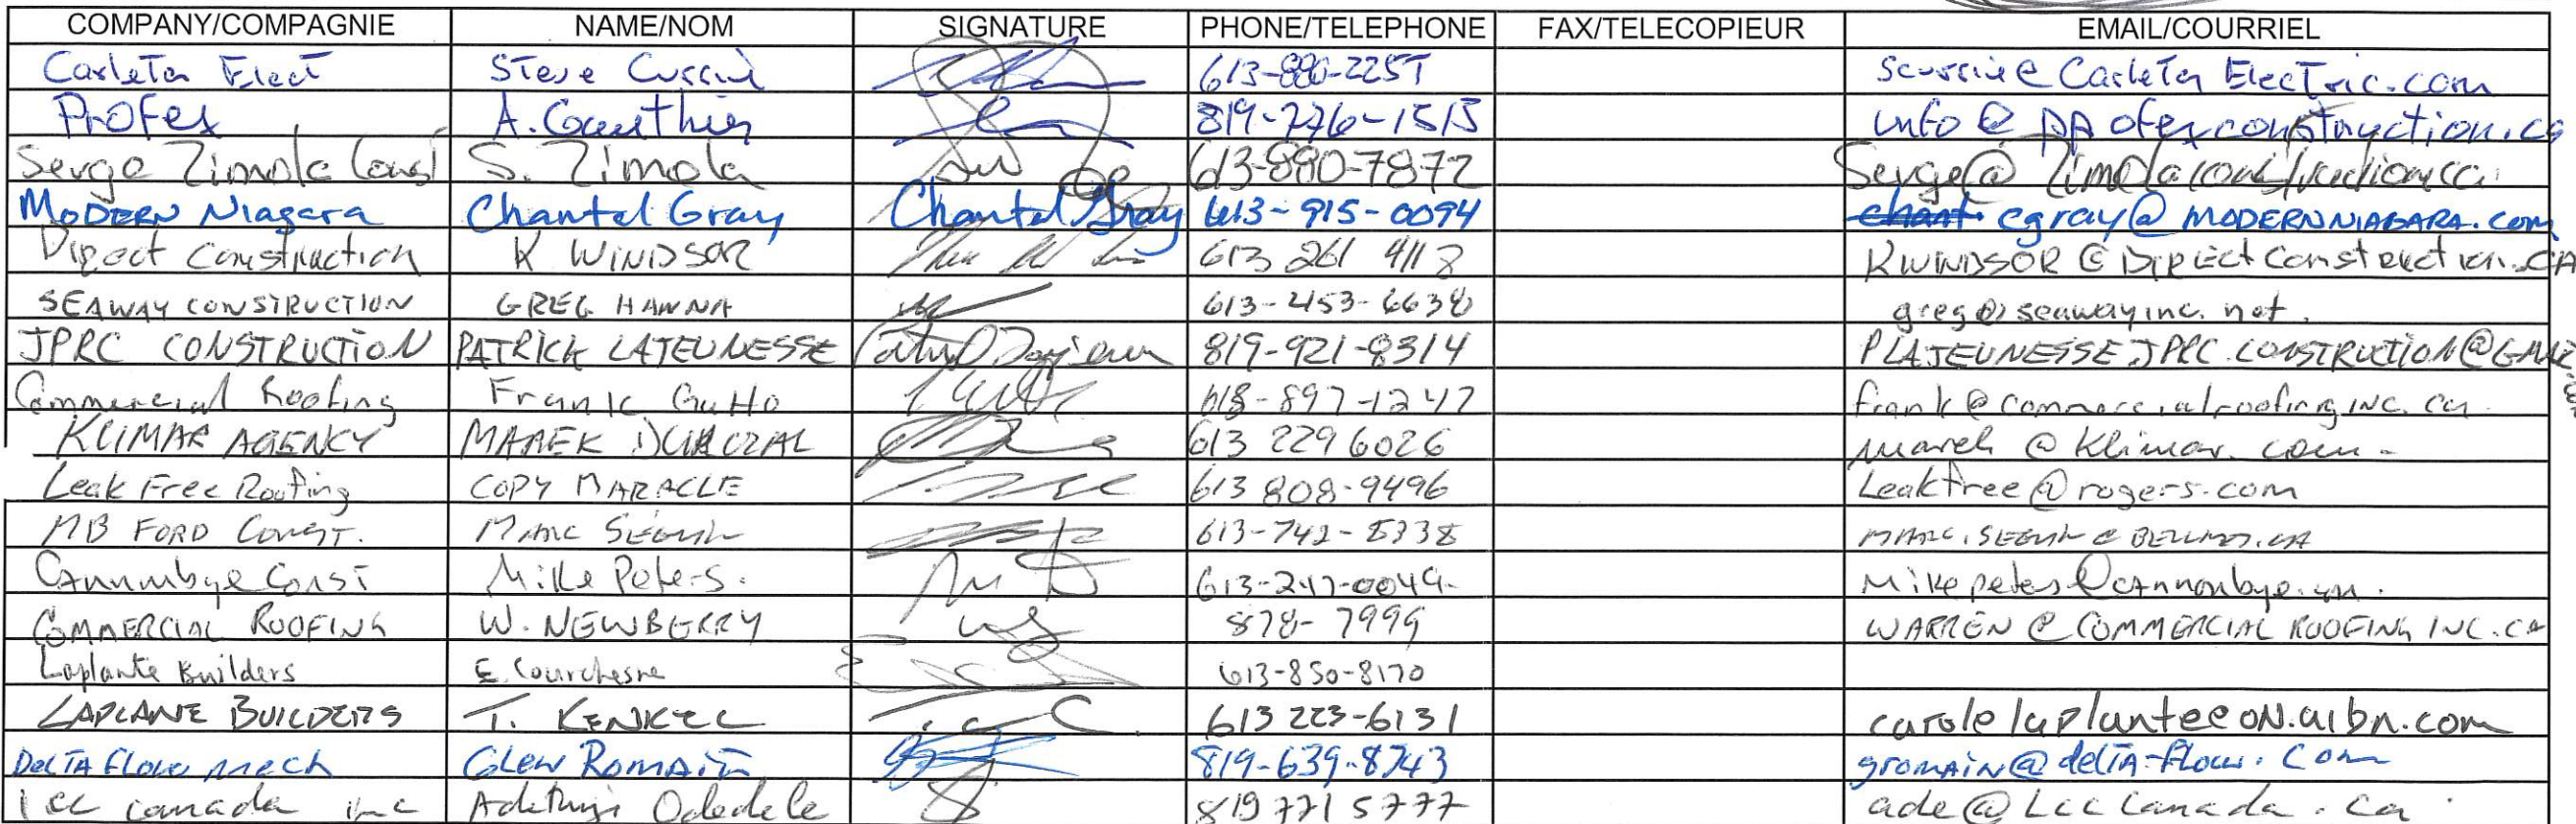 COMPANY/COMPAGNIE NAME/NOM SIGNATURE PHONE/TELEPHONE FAX/TELECOPIEUR EMAIL/COURRIEL
Carleton Elect Steve 613-880-2257
Profex A. Gauthier 819-776-1515
Serge Zimola Const S. Zimola 613-880-7872
MODERN Niagara Chantal Gray Chantal Gray 613-915-0094 cgray@MODERNNIAGARA.COM
Direct Construction K WINDSOR 613 261 4118 KWINDSOR@DIRECTConstruction.CA
SEAWAY CONSTRUCTION GREG HANNA 613-453-6638 greg@seawayinc.net
JPRC CONSTRUCTION PATRICK LAJEUNESSE 819-921-8314 PLAJEUNESSE.JPRC.CONSTRUCTION@GMAIL
Commercial Roofing Frank 613-897-1247 frank@commercialroofinginc.ca
KLIMAR AGENCY MAREK 613 229 6026 marek@Klimar.com
Leak Free Roofing CORY MARACLE 613 808-9496 Leakfree@rogers.com
MB FORD CONST. MARC SEGUIN 613-742-8338
Const Mike Peters. 613-247-0049
COMMERCIAL ROOFING W. NEWBERRY 878-7999 WARREN@COMMERCIALROOFINGINC.CA
Laplante Builders E. Courchesne 613-850-8170
BUILDERS T. 613 223-6131 carolelaplante@ON.aibn.com
DELTA Flow mech Glen Romain 819-639-8743 gromain@delta-flow.com
canada inc Odedele 819 771 5777 ade@Lcccanada.ca